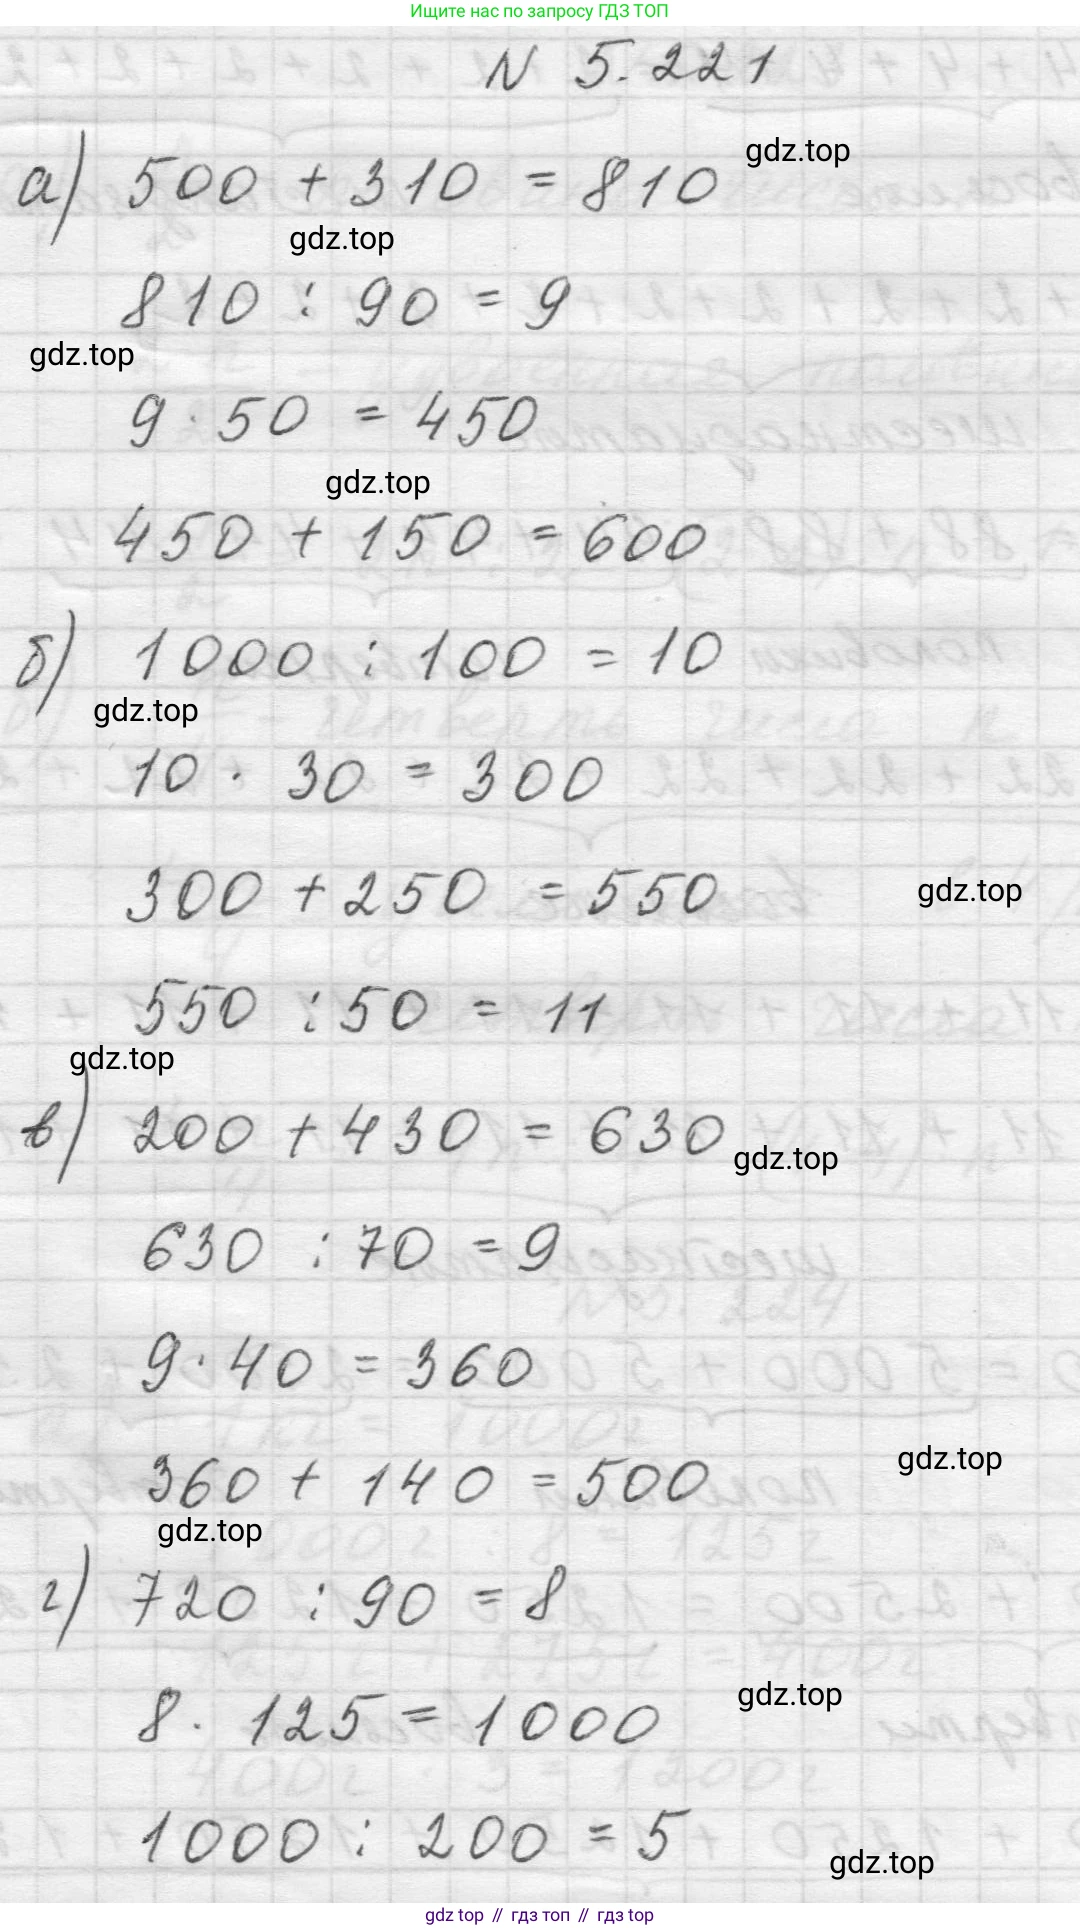 Ищите нас по запросу ГДЗ ТОП
N 5.221
gdz.top
а) 500 + 310 = 810
gdz.top
810 : 90 = 9
gdz.top
9 · 50 = 450
gdz.top
450 + 150 = 600
б) 1000 : 100 = 10
gdz.top
10 · 30 = 300
300 + 250 = 550
gdz.top
550 : 50 = 11
gdz.top
в) 200 + 430 = 630
gdz.top
630 : 70 = 9
9 · 40 = 360
gdz.top
360 + 140 = 500
gdz.top
г) 720 : 90 = 8
gdz.top
8 · 125 = 1000
1000 : 200 = 5
gdz.top
gdz top // гдз топ // гдз top